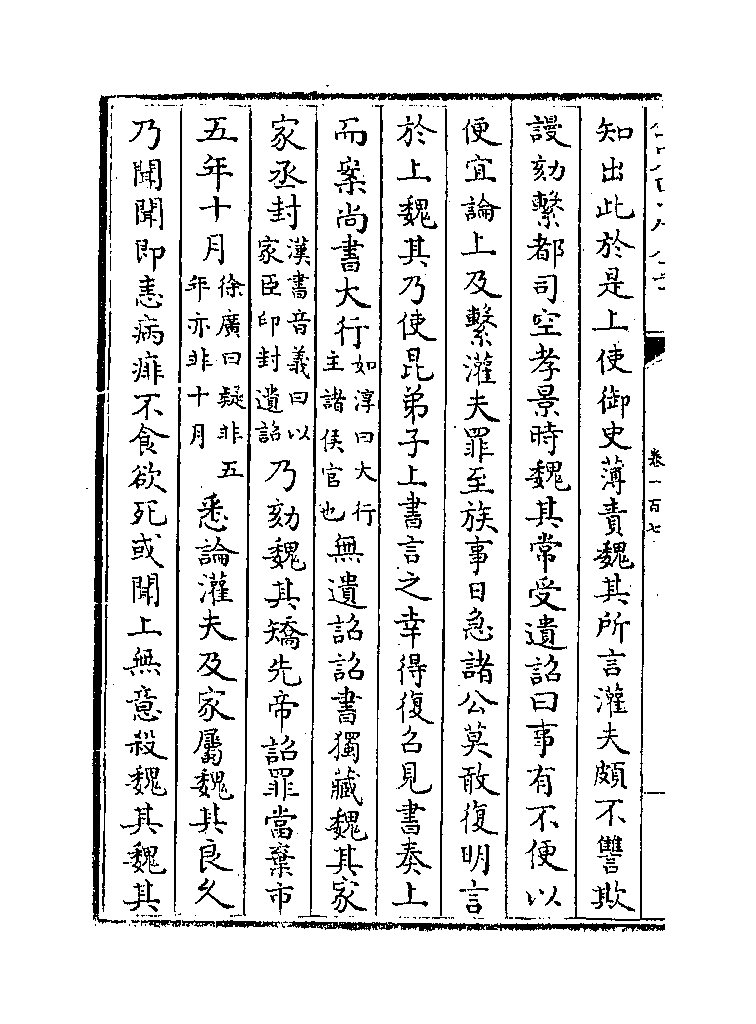 知出此於是上使御史薄責魏其所言灌夫頗不讐欺
謾劾繫都司空孝景時魏其常受遺詔曰事有不便以
便宜論上及繫灌夫罪至族事日急諸公莫敢復明言
於上魏其乃使昆弟子上書言之幸得復召見書奏上
而案尚書大行如淳曰大行主諸侯官也無遺詔詔書獨藏魏其家
家丞封漢書音義曰以家臣印封遺詔乃劾魏其矯先帝詔罪當棄市
五年十月徐廣曰疑非五年亦非十月悉論灌夫及家屬魏其良久
乃聞聞即恚病痱不食欲死或聞上無意殺魏其魏其
卷一百七